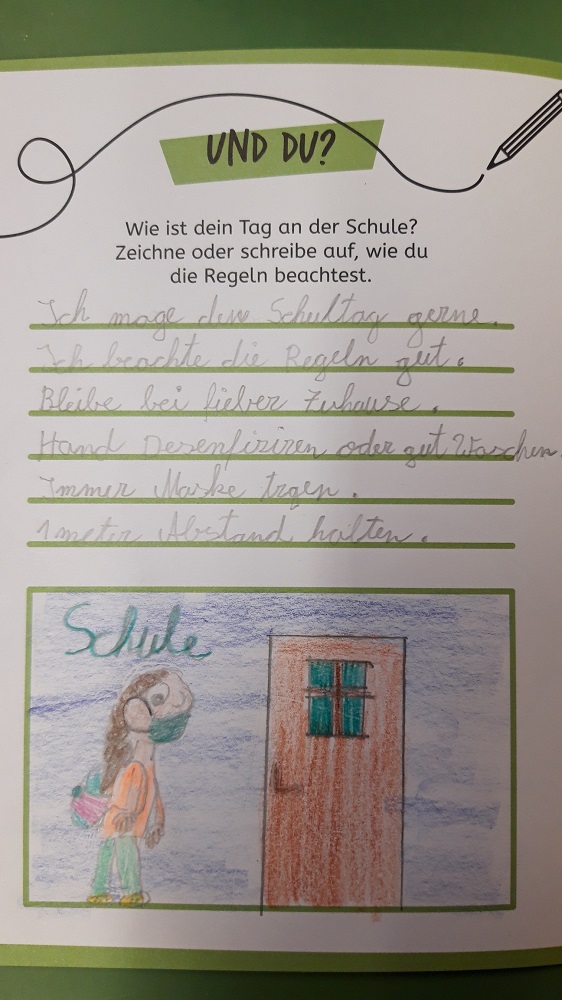 UND DU?
Wie ist dein Tag an der Schule?
Zeichne oder schreibe auf, wie du
die Regeln beachtest.
Ich mage den Schultag gerne.
Ich beachte die Regeln gut.
Bleibe bei fieber Zuhause.
Hand Desenfiziren oder gut Waschen.
Immer Maske trgen.
1 meter Abstand halten.
Schule